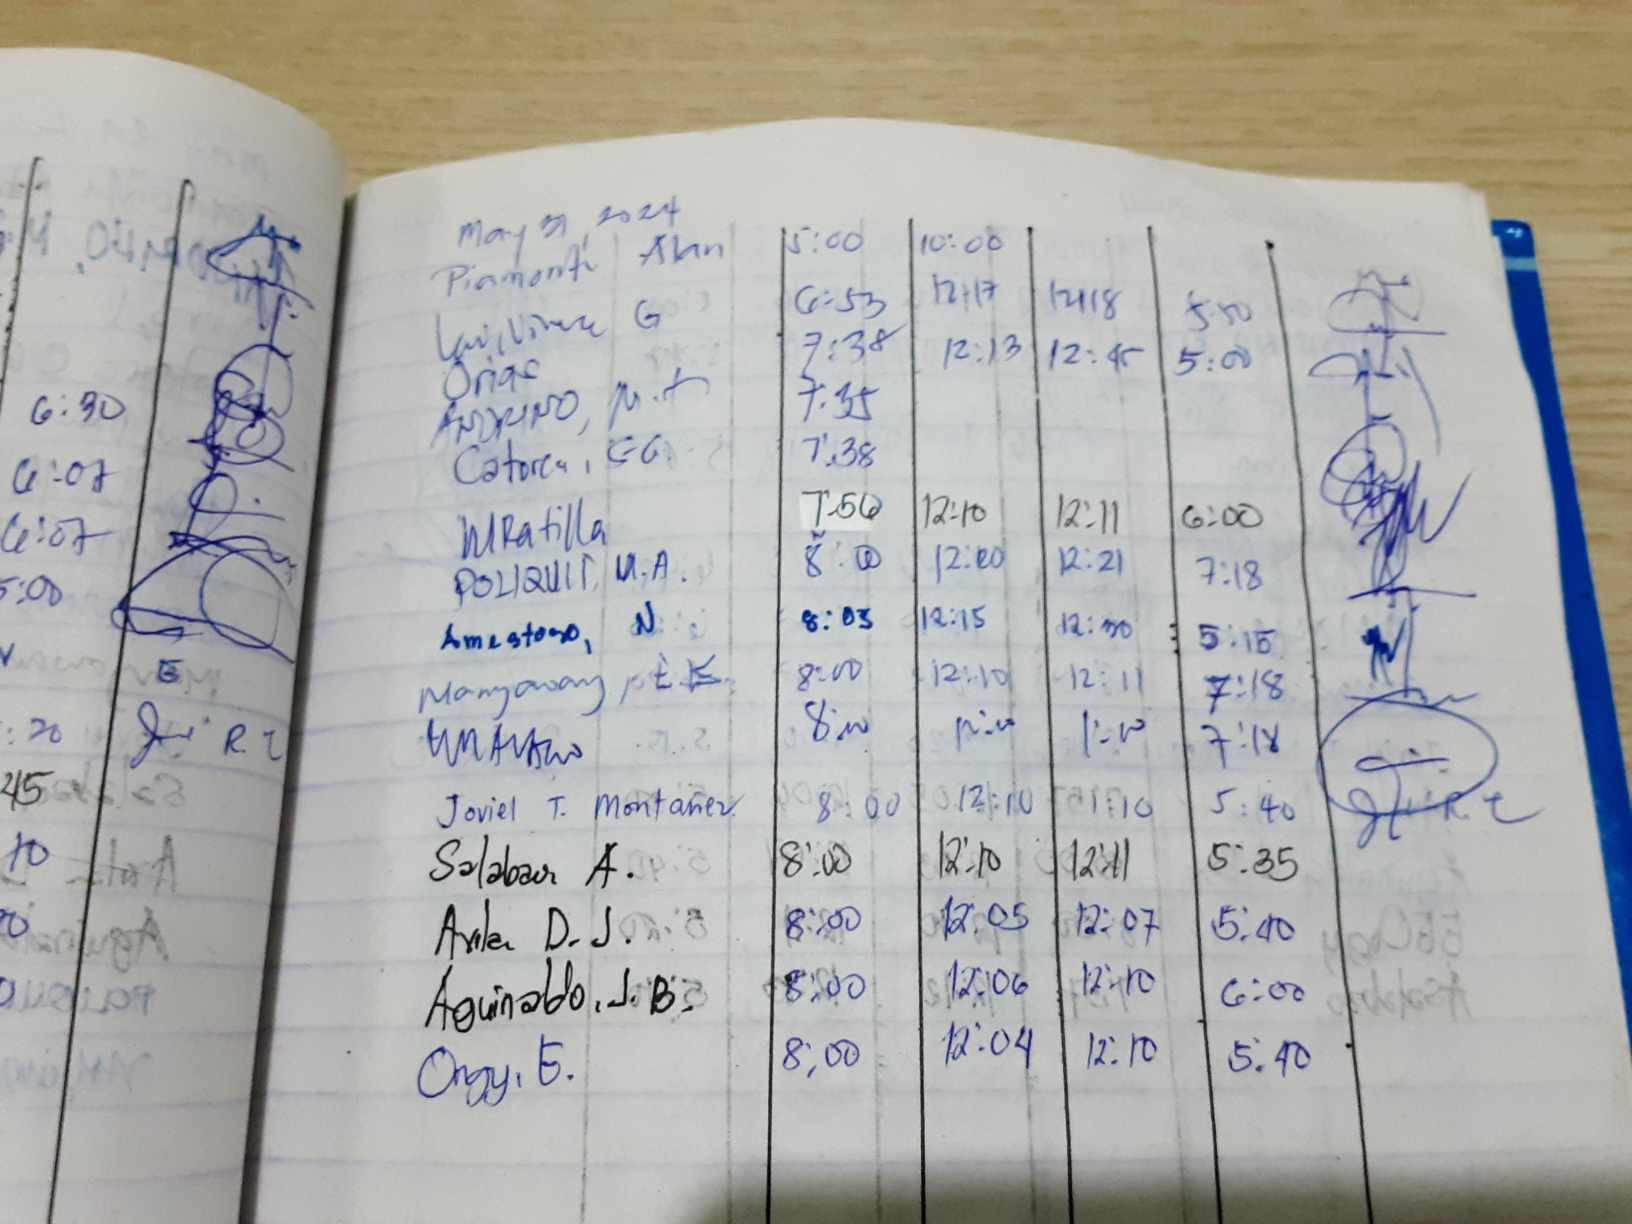 6:30
6:07
6:07
5:00
E
:20 R.T
45
May 31, 2024
Piamonti Alan 5:00 10:00
G 6:53 12:17 12:18 5:50
Orige 7:38 12:13 12:45 5:00
ANDRINO, M. 7:35
Catorce, 7:38
MRatilla 7:56 12:10 12:11 6:00
POLIQUIT, M.A. 8:00 12:20 12:21 7:18
Amestoso, N. 8:03 12:15 12:30 5:15
Mangawang 8:00 12:10 12:11 7:18
8:00 7:18
Joviel T. Montañez 8:00 12:10 1:10 5:40 R.T
Salabau A. 8:00 12:10 12:11 5:35
Avila D.J. 8:00 12:05 12:07 5:40
Aguinaldo, J.B. 8:00 12:06 12:10 6:00
Orgy, E. 8:00 12:04 12:10 5:40